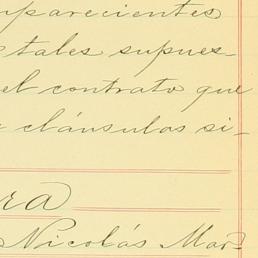 mparecientes
tales supues-
el contrato que
cláusulas si-
ra
Nicolás Mar-